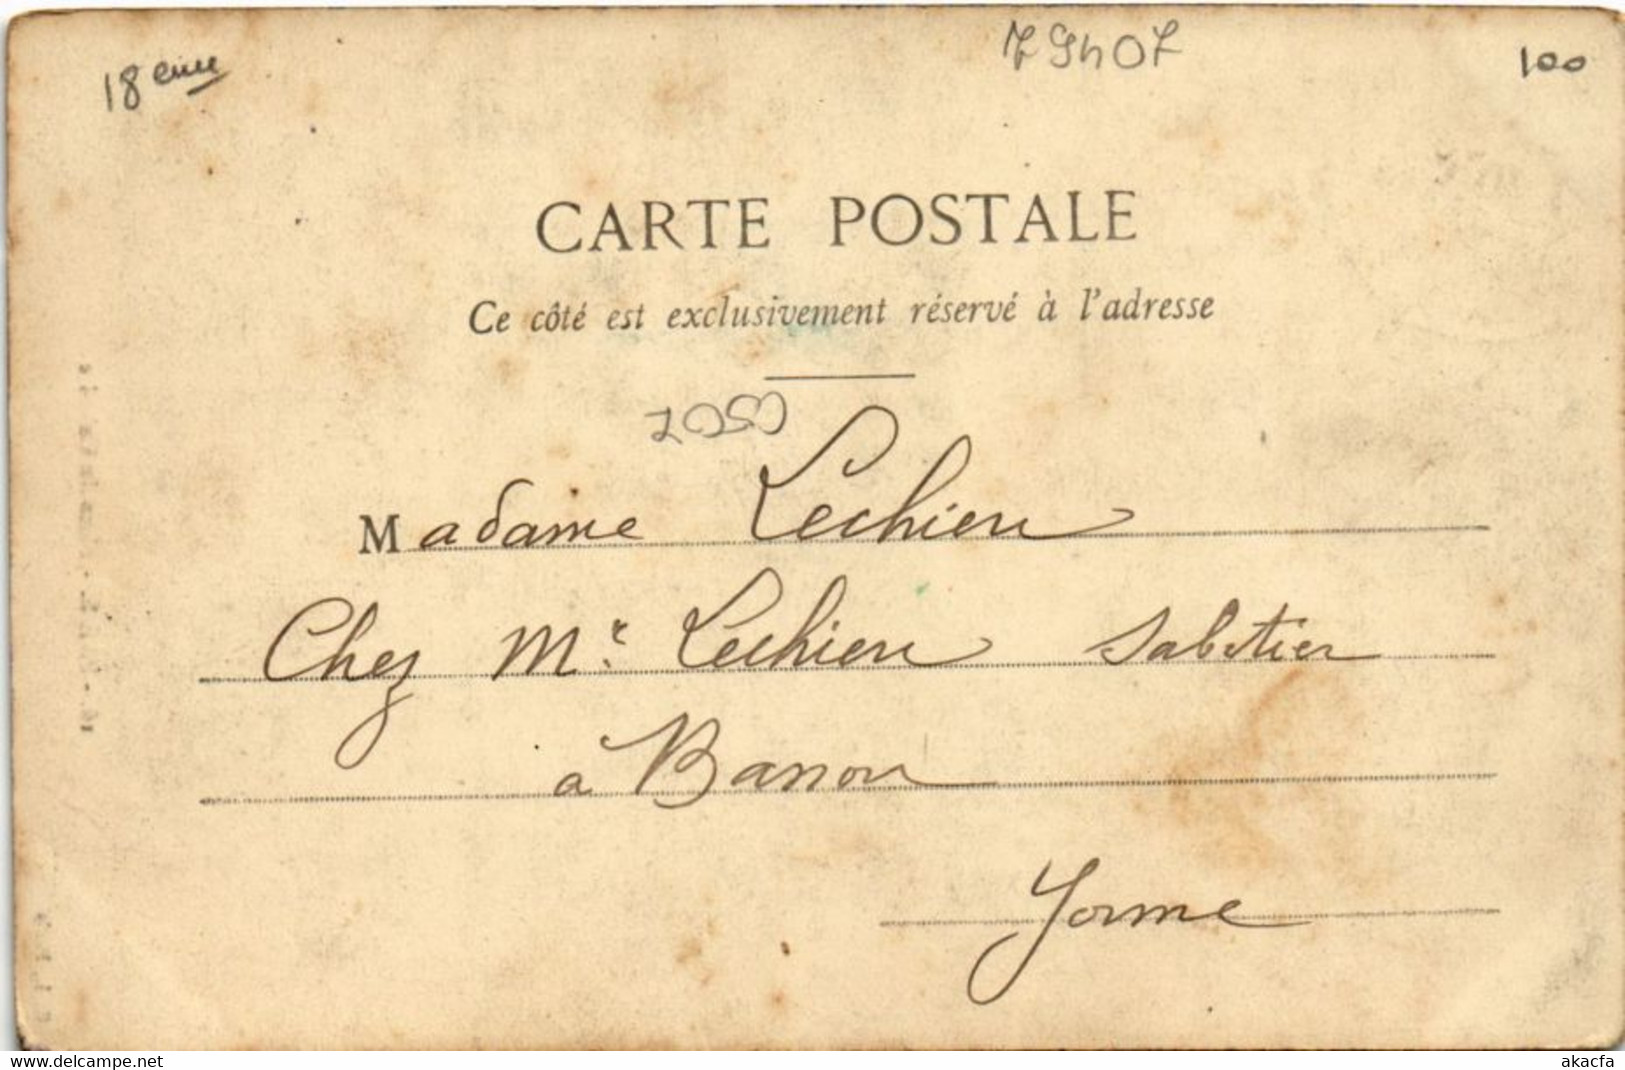 18eme
79407
100
CARTE POSTALE
Ce côté est exclusivement réservé à l'adresse
Madame Lechien
Chez Mr Lechien Sabotier
à Banon
Yonne
www.delcampe.net
akacfa